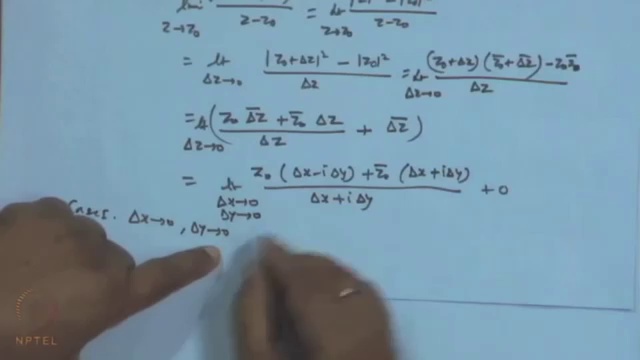 lim Z→Z₀ / Z-Z₀ = lt Z→Z₀ / Z-Z₀
= lt Δz→0 |Z₀+Δz|² - |Z₀|² / Δz = lt Δz→0 (Z₀+Δz)(Z̄₀+Δ̄z̄) - Z₀Z̄₀ / Δz
= lt Δz→0 ( Z₀ Δ̄z̄ + Z̄₀ Δz / Δz + Δ̄z̄ )
= lt Δx→0 Δy→0 Z₀ (Δx-iΔy) + Z̄₀ (Δx+iΔy) / Δx+iΔy + 0
Case I. Δx→0, Δy→0
NPTEL